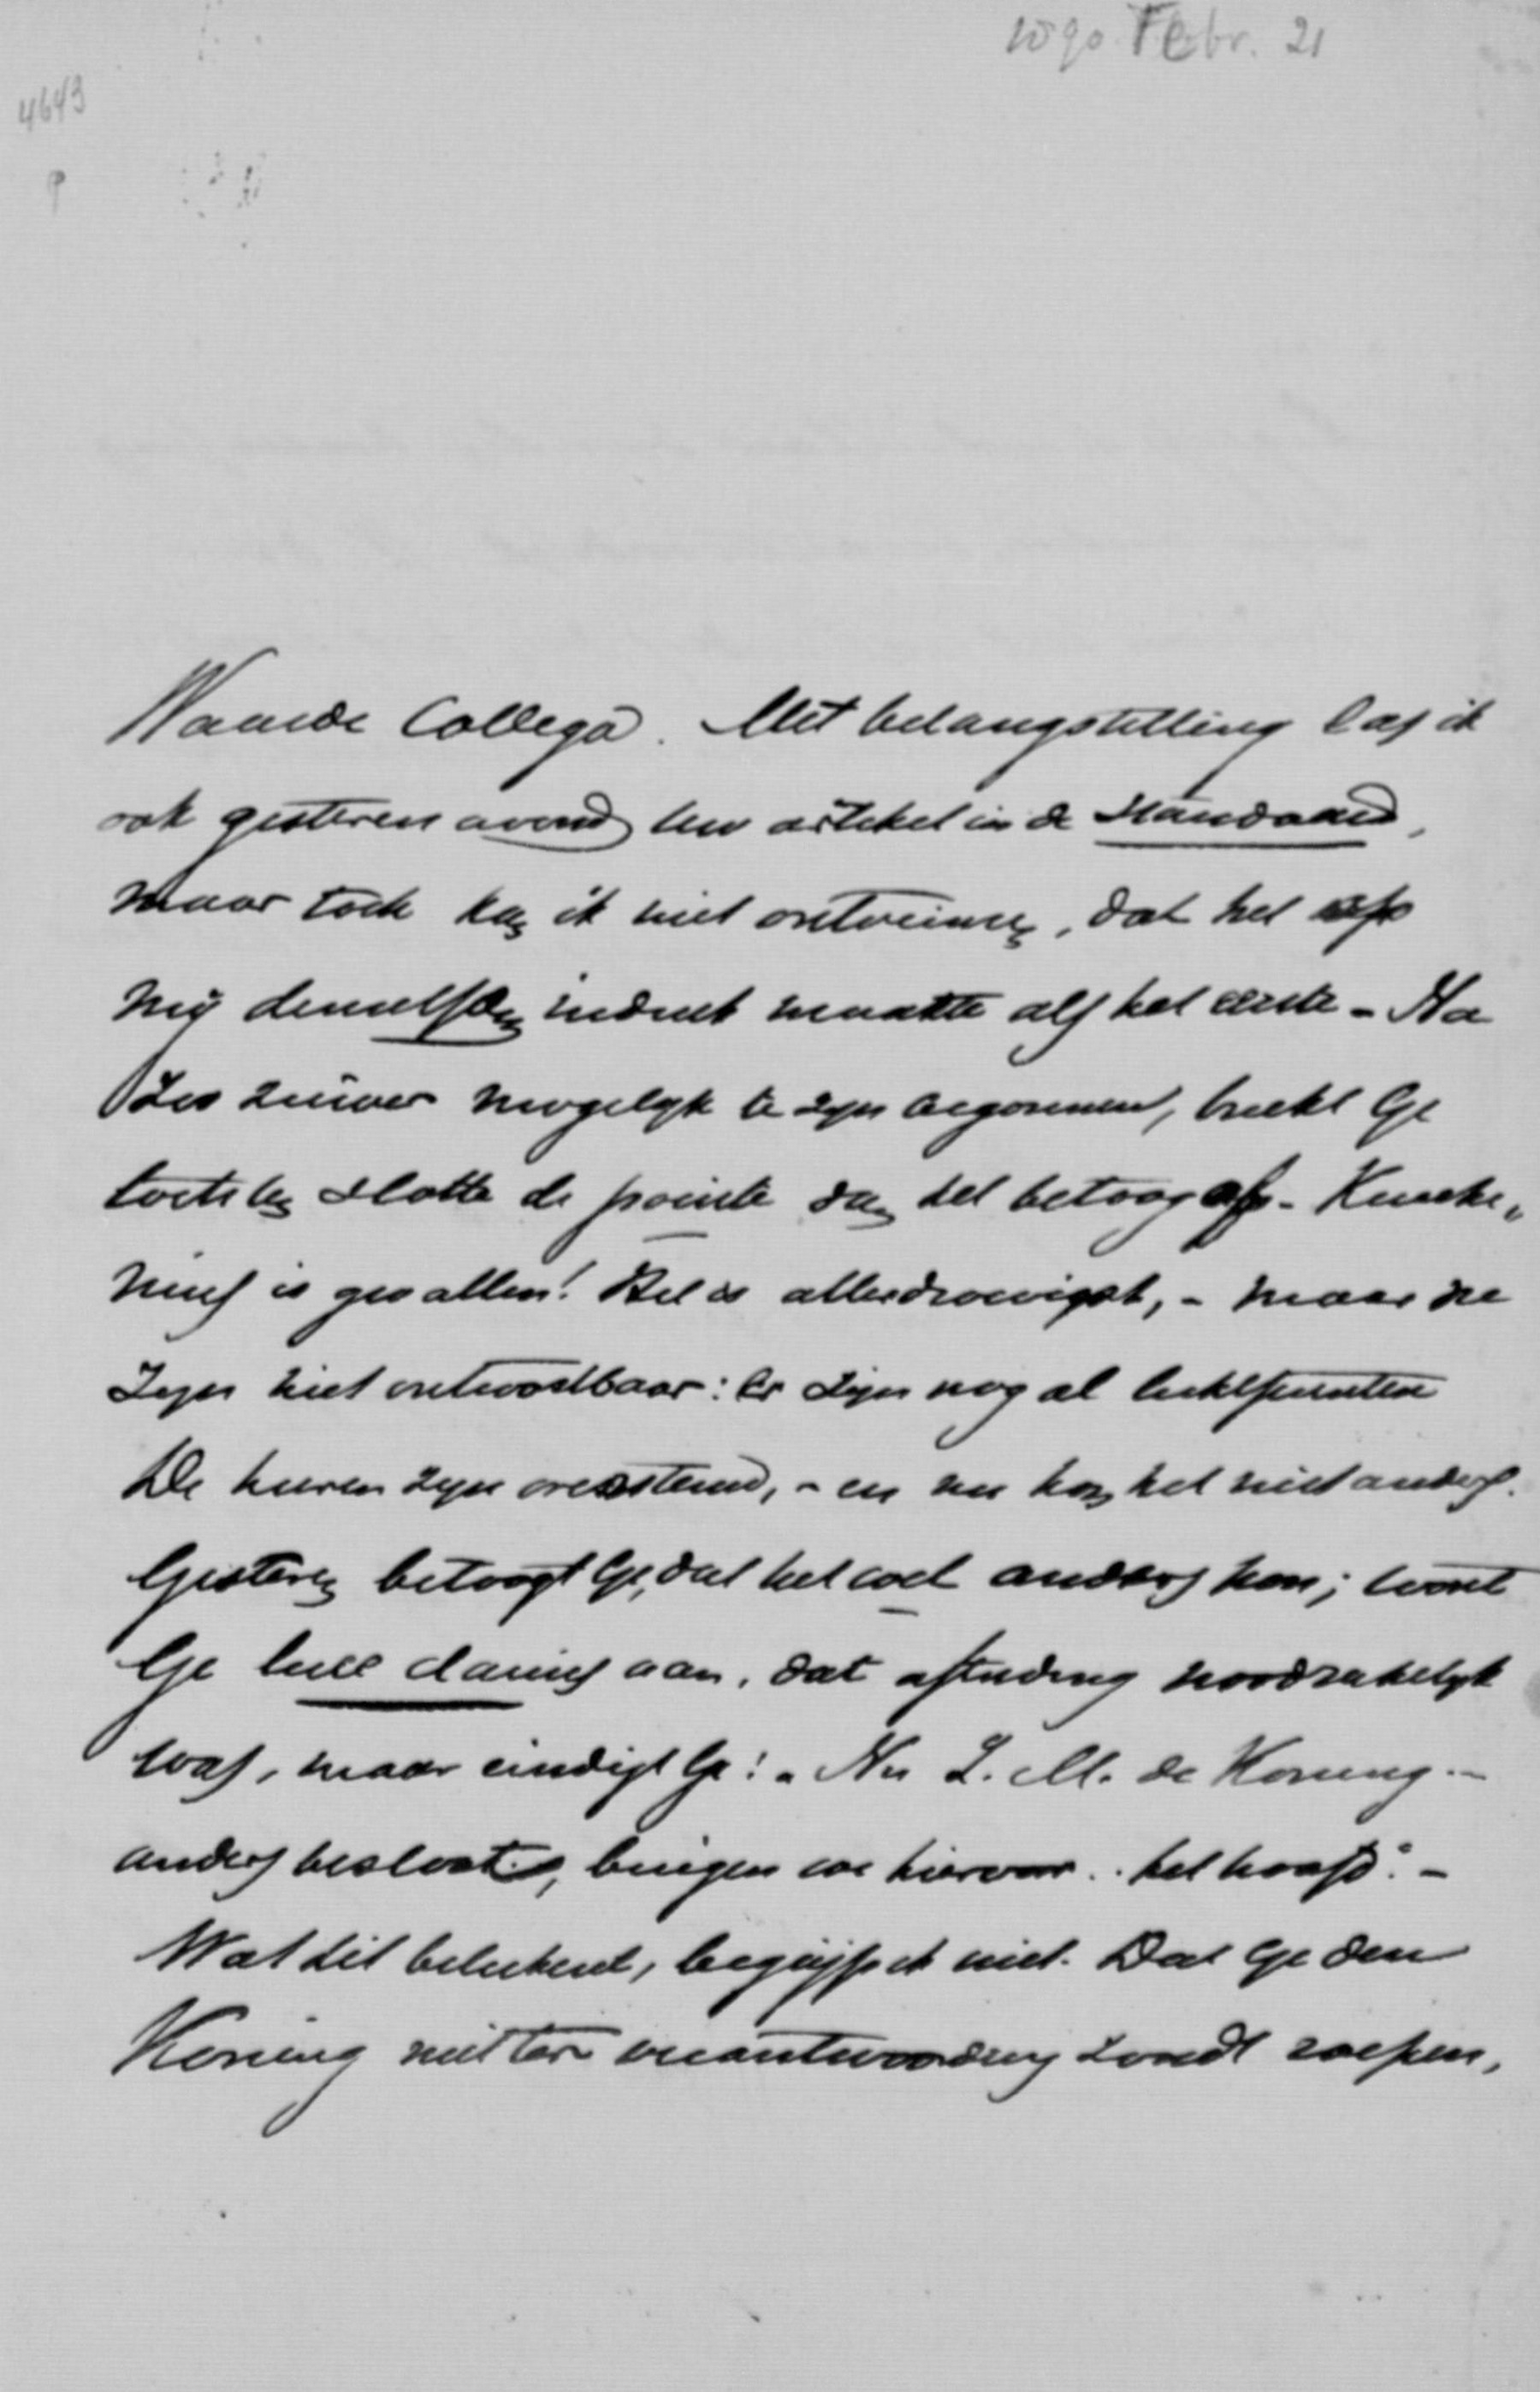 1890 Febr. 21
4643
P
Waarde Collega. Met belangstelling las ik
ook gisteren avond Uw artikel in de Standaard,
maar toch kan ik niet ontveinzen, dat het op
mij denzelfden indruk maakte als het eerste - Na
zoo zuiver mogelijk te zijn begonnen, breekt Ge
toch ten slotte de pointe van het betoog af. - Keuche-
nius is gevallen! Het is allerdroevigst, - maar we
zijn niet ontroostbaar: er zijn nog al lichtpunten
De heeren zijn overstemd, - en nu kon het niet anders.
Gisteren betoogt Ge, dat het wel anders kon; toont
Ge luce clarius aan, dat aftreding noodzakelijk
was, maar eindigt Ge: "Nu Z. M. de Koning -
anders besloot, buigen we hiervoor .. het hoofd". -
Wat dit beteekent, begrijp ik niet. Dat Ge den
Koning niet ter verantwoording zoudt roepen,